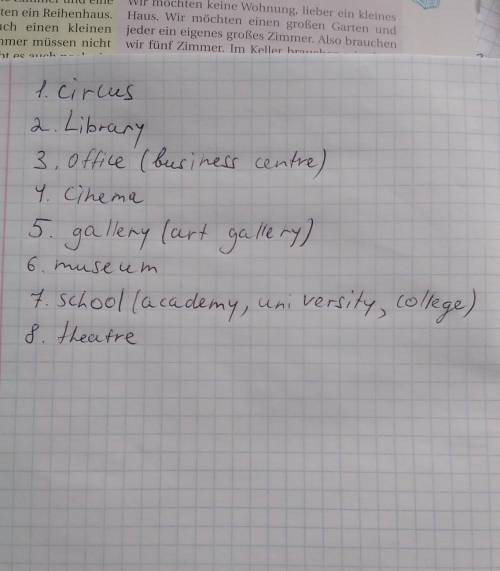 ten ein Reihenhaus.
uch einen kleinen
mmer müssen nicht
Wir möchten keine Wohnung, lieber ein kleines
Haus. Wir möchten einen großen Garten und
jeder ein eigenes großes Zimmer. Also brauchen
wir fünf Zimmer. Im Keller
1. circus
2. Library
3. office (business centre)
4. Cinema
5. gallery (art gallery)
6. museum
7. school (academy, university, college)
8. theatre